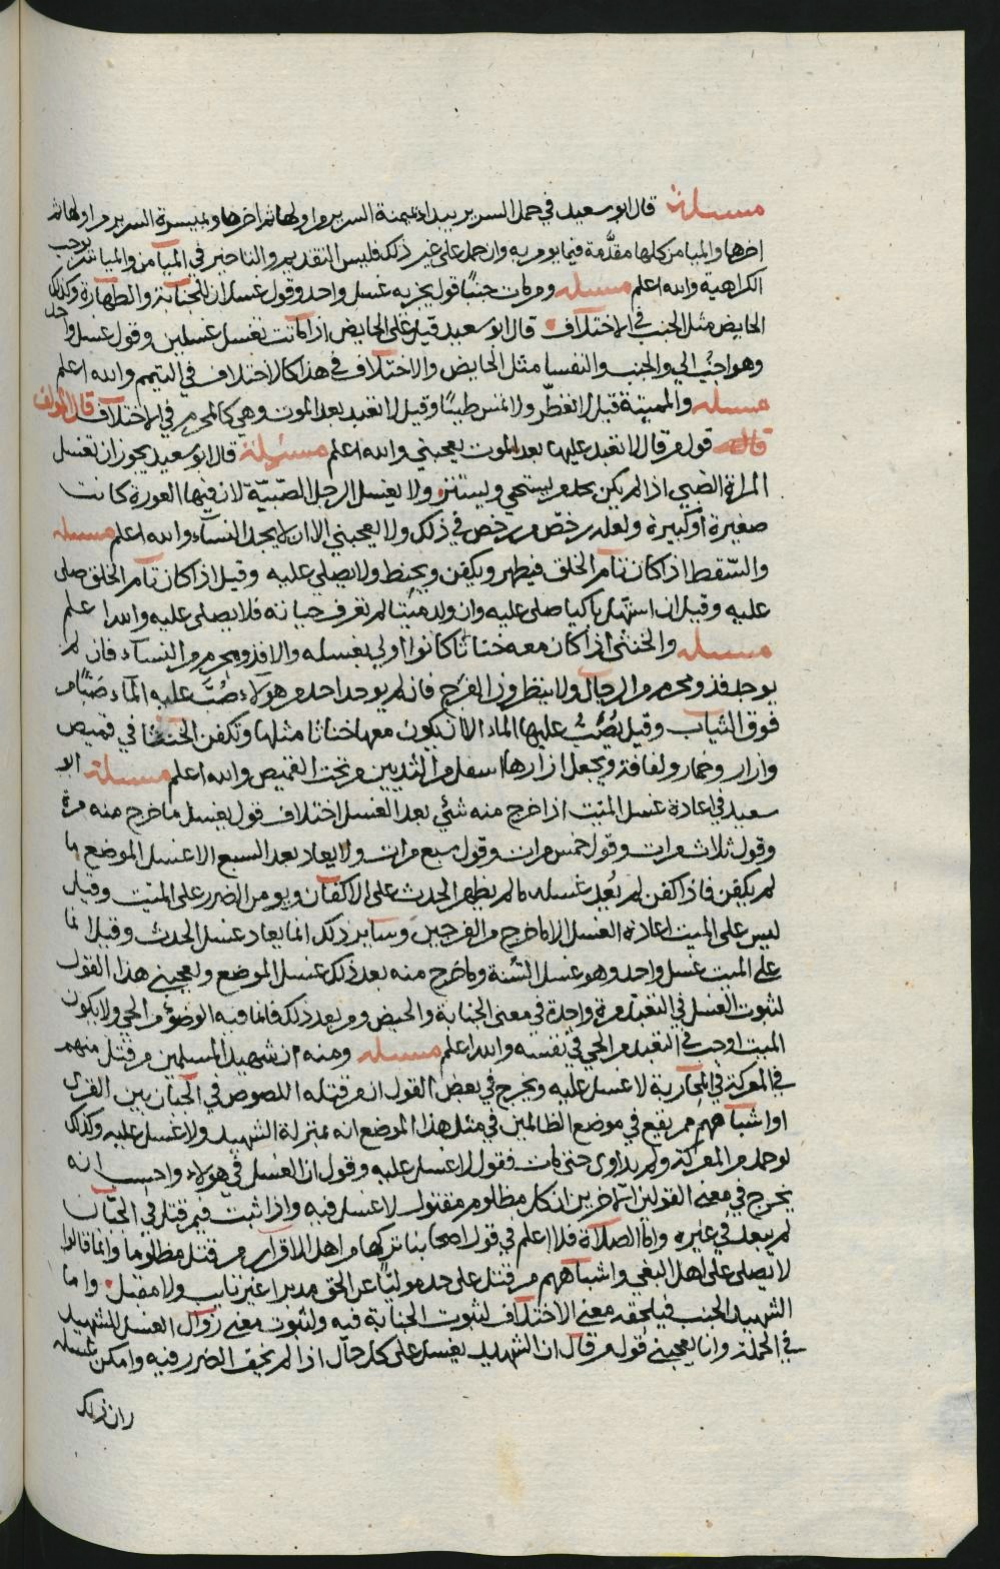 مسئلة قال ابو سعيد في حمل السرير يبدا بميمنة السرير من اولها ثم اخرها وبميسرة السرير من اولها ثم
اخرها والميامن كلها مقدمة فيما يومر به وان حمل على غير ذلك فليس التقديم والتاخير في الميامن والمياسر يوجب
الكراهية والله اعلم مسئله ومن مات جنبا قول يجزيه غسل واحد وقول غسلان للجنابة والطهارة وكذلك
الحايض مثل الجنب في الاختلاف قال ابو سعيد قيل على الحايض اذا ماتت تغسل غسلين وقول غسل واحد
وهو احب الي والجنب والنفسا مثل الحايض والاختلاف في هذا كالاختلاف في التيمم والله اعلم
مسئله والمميتة قيل لا تعطر ولا تمس طيبا وقيل لا تعبد بعد الموت وهي كالمحرم في الاختلاف قال المولف
قول من قال لا تعبد عليها بعد الموت يعجبني والله اعلم مسئلة قال ابو سعيد يجوز ان تغسل
المراة الصبي اذا لم يكن بحد من يستحي ويستتر ولا يغسل الرجل الصبية لان فيها العورة كانت
صغيرة او كبيرة ولعله رخص من رخص في ذلك ولا يعجبني الا ان لا يجد النساء والله اعلم مسئله
والسقط اذا كان تام الخلق فيطهر ويكفن ويحنط ولا يصلي عليه وقيل اذا كان تام الخلق صلى
عليه وقيل ان استهل باكيا صلى عليه وان ولد ميتا لم تعرف حياته فلا يصلى عليه والله اعلم
مسئله والخنثى اذا كان معه خناثا كانوا اولى بغسله والا فذو محرم من النساء فان لم
يوجد فذو محرم من الرجال ولا ينظرون الفرج فان لم يوجد احد من هولاء صب عليه الماء صبا من
فوق الثياب وقيل يصب عليها الماء الا ان يكون معها خناثا مثلها وتكفن الخنثى في قميص
وازار وخمار ولفافة ويجعل ازارها اسفل من الثديين من تحت القميص والله اعلم مسئلة ابو
سعيد في اعادة غسل الميت اذا خرج منه شئي بعد الغسل اختلاف قول يغسل ما خرج منه مرة
وقول ثلاث مرات وقول خمس مرات وقول سبع مرات ولا يعاد بعد السبع الا غسل الموضع ما
لم يكفن فاذا كفن لم يعد غسله ما لم يظهر الحدث على الاكفان ويومن الضرر على الميت وقيل
ليس على الميت اعادة الغسل الا ما خرج من الفرجين وساير ذلك انما يعاد غسل الحدث وقيل انما
على الميت غسل واحد وهو غسل السنة وما خرج منه بعد ذلك غسل الموضع ويعجبني هذا القول
لثبوت الغسل في التعبد مرة واحدة في معنى الجنابة والحيض ومن بعد ذلك فانما فيه الوضوء من الحي ولا يكون
الميت اوجب في التعبد من الحي في نفسه والله اعلم مسئله ومنه ان شهيد المسلمين من قتل منهم
في المعركة في المحاربة لا غسل عليه ويخرج في بعض القول ان من قتله اللصوص في الجبان بين القرى
او اشباههم ممن يقع في موضع الظالمين في مثل هذا الموضع انه بمنزلة الشهيد ولا غسل عليه وكذلك
لو حمل من المعركة ولم يداوى حتى مات فقول لا غسل عليه وقول ان الغسل في هولاء واحسب انه
يخرج في معنى القولين الآخرين ان كل مظلوم مقتول لا غسل فيه واذا ثبت فيمن قتل في الجبان
لم يبعد في غيره واما الصلاة فلا اعلم في قول اصحابنا تركها من اهل الاقرار من قتل مظلوما وانما قالوا
لا يصلى على اهل البغي واشباههم من قتل على حد موليا عن الحق مدبرا غير تايب ولا مقبل واما
الشهيد الجنب فيلحقه معنى الاختلاف لثبوت الجنابة فيه ولثبوت معنى زوال الغسل للشهيد
في الجملة وانا يعجبني قول من قال ان الشهيد يغسل على كل حال اذا لم يخف الضرر فيه وامكن غسله
وان ترك